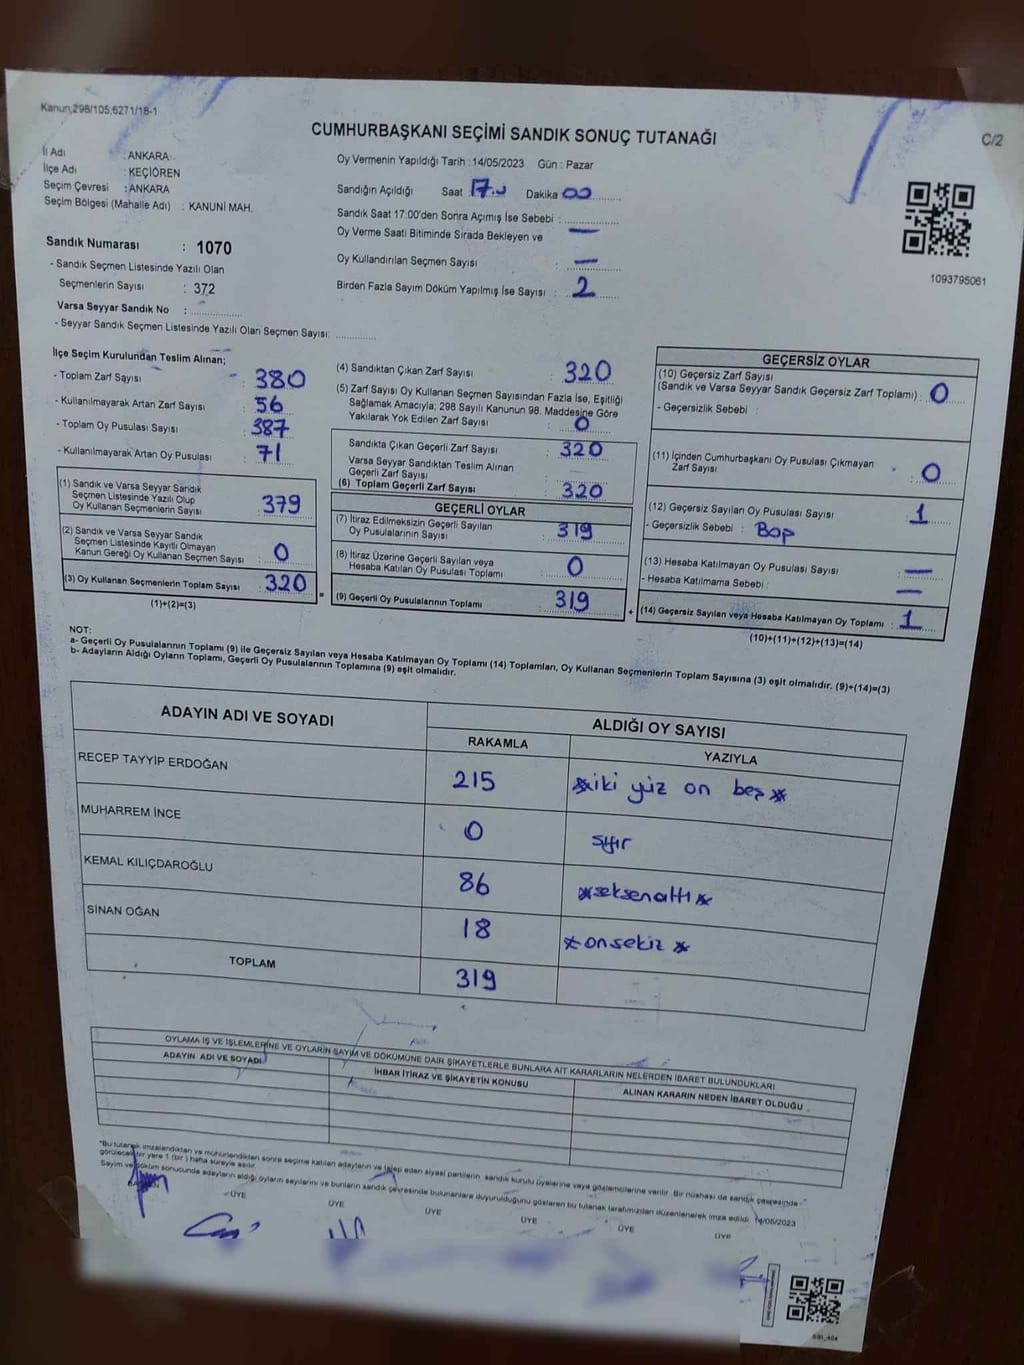 Kanun;298/105,6271/18-1
CUMHURBAŞKANI SEÇİMİ SANDIK SONUÇ TUTANAĞI
C/2
İl Adı : ANKARA
İlçe Adı : KEÇİÖREN
Seçim Çevresi : ANKARA
Seçim Bölgesi (Mahalle Adı) : KANUNİ MAH.
Sandık Numarası : 1070
- Sandık Seçmen Listesinde Yazılı Olan
Seçmenlerin Sayısı : 372
Varsa Seyyar Sandık No :
- Seyyar Sandık Seçmen Listesinde Yazılı Olan Seçmen Sayısı:
Oy Vermenin Yapıldığı Tarih :14/05/2023 Gün : Pazar
Sandığın Açıldığı Saat 17.00 Dakika 00
Sandık Saat 17:00'den Sonra Açımış İse Sebebi :
Oy Verme Saati Bitiminde Sırada Bekleyen ve —
Oy Kullandırılan Seçmen Sayısı : —
Birden Fazla Sayım Döküm Yapılmış İse Sayısı : 2
1093795061
İlçe Seçim Kurulundan Teslim Alınan;
- Toplam Zarf Sayısı : 380
- Kullanılmayarak Artan Zarf Sayısı : 56
- Toplam Oy Pusulası Sayısı : 387
- Kullanılmayarak Artan Oy Pusulası : 71
(1) Sandık ve Varsa Seyyar Sandık
Seçmen Listesinde Yazılı Olup
Oy Kullanan Seçmenlerin Sayısı : 379
(2) Sandık ve Varsa Seyyar Sandık
Seçmen Listesinde Kayıtlı Olmayan
Kanun Gereği Oy Kullanan Seçmen Sayısı : 0
(3) Oy Kullanan Seçmenlerin Toplam Sayısı : 320
(1)+(2)=(3)
=
(4) Sandıktan Çıkan Zarf Sayısı : 320
(5) Zarf Sayısı Oy Kullanan Seçmen Sayısından Fazla İse, Eşitliği
Sağlamak Amacıyla; 298 Sayılı Kanunun 98. Maddesine Göre
Yakılarak Yok Edilen Zarf Sayısı : 0
Sandıkta Çıkan Geçerli Zarf Sayısı : 320
Varsa Seyyar Sandıktan Teslim Alınan
Geçerli Zarf Sayısı :
(6) Toplam Geçerli Zarf Sayısı : 320
GEÇERLİ OYLAR
(7) İtiraz Edilmeksizin Geçerli Sayılan
Oy Pusulalarının Sayısı : 319
(8) İtiraz Üzerine Geçerli Sayılan veya
Hesaba Katılan Oy Pusulası Toplamı : 0
(9) Geçerli Oy Pusulalarının Toplamı : 319
+
GEÇERSİZ OYLAR
(10) Geçersiz Zarf Sayısı
(Sandık ve Varsa Seyyar Sandık Geçersiz Zarf Toplamı) : 0
- Geçersizlik Sebebi :
(11) İçinden Cumhurbaşkanı Oy Pusulası Çıkmayan
Zarf Sayısı : 0
(12) Geçersiz Sayılan Oy Pusulası Sayısı : 1
- Geçersizlik Sebebi : Boş
(13) Hesaba Katılmayan Oy Pusulası Sayısı : —
- Hesaba Katılmama Sebebi : —
(14) Geçersiz Sayılan veya Hesaba Katılmayan Oy Toplamı : 1
(10)+(11)+(12)+(13)=(14)
NOT:
a- Geçerli Oy Pusulalarının Toplamı (9) ile Geçersiz Sayılan veya Hesaba Katılmayan Oy Toplamı (14) Toplamları, Oy Kullanan Seçmenlerin Toplam Sayısına (3) eşit olmalıdır. (9)+(14)=(3)
b- Adayların Aldığı Oyların Toplamı, Geçerli Oy Pusulalarının Toplamına (9) eşit olmalıdır.
ADAYIN ADI VE SOYADI
ALDIĞI OY SAYISI
RAKAMLA YAZIYLA
RECEP TAYYİP ERDOĞAN 215 *iki yüz on beş*
MUHARREM İNCE 0 sıfır
KEMAL KILIÇDAROĞLU 86 *seksenaltı*
SİNAN OĞAN 18 *onsekiz*
TOPLAM 319
OYLAMA İŞ VE İŞLEMLERİNE VE OYLARIN SAYIM VE DÖKÜMÜNE DAİR ŞİKAYETLERLE BUNLARA AİT KARARLARIN NELERDEN İBARET BULUNDUKLARI
ADAYIN ADI VE SOYADI İHBAR İTİRAZ VE ŞİKAYETİN KONUSU ALINAN KARARIN NEDEN İBARET OLDUĞU
"Bu tutanak imzalandıktan ve mühürlendikten sonra seçime katılan adayların ve talep eden siyasi partilerin sandık kurulu üyelerine veya gözlemcilerine verilir. Bir nüshası da sandık çevresinde
görülecek bir yere 1 (bir) hafta süreyle asılır.
Sayım ve döküm sonucunda adayların aldığı oyların sayılarını ve bunların sandık çevresinde bulunanlara duyurulduğunu gösteren bu tutanak tarafımızdan düzenlenerek imza edildi. 14/05/2023
BAŞKAN ÜYE ÜYE ÜYE ÜYE ÜYE ÜYE